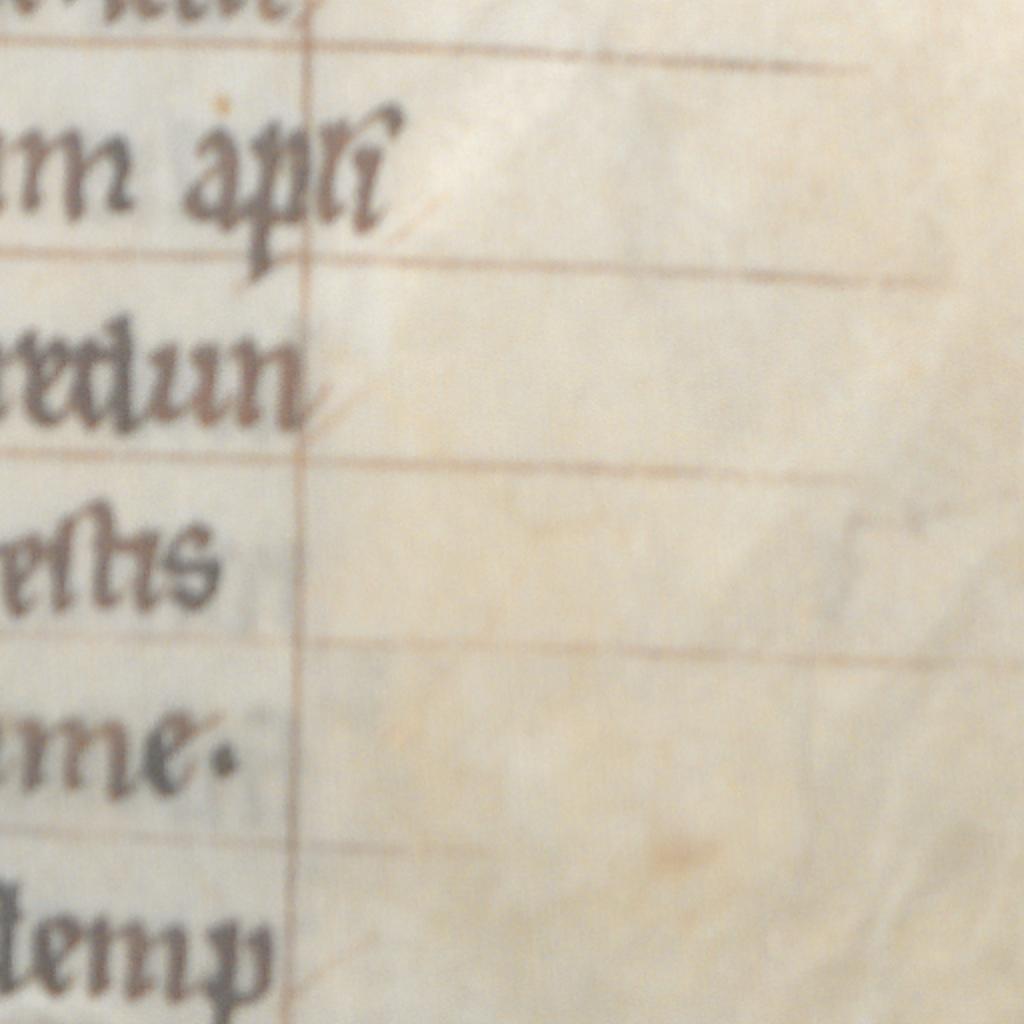 um apri
redun
estis
ume.
demp